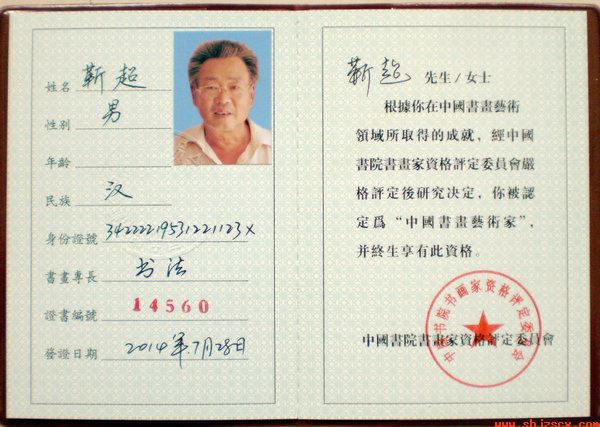 姓名 靳超
性别 男
年齡
民族 汉
身份證號 34222219531221123X
書畫專長 书法
證書編號 14560
發證日期 2014年.7月28日
靳超 先生/女士
根據你在中國書畫藝術
領域所取得的成就，經中國
書院書畫家資格評定委員會嚴
格評定後研究決定，你被認
定爲“中國書畫藝術家”，
并終生享有此資格。
中国书院书画家资格评定委员会
中國書院書畫家資格評定委員會
www.shjzscx.com